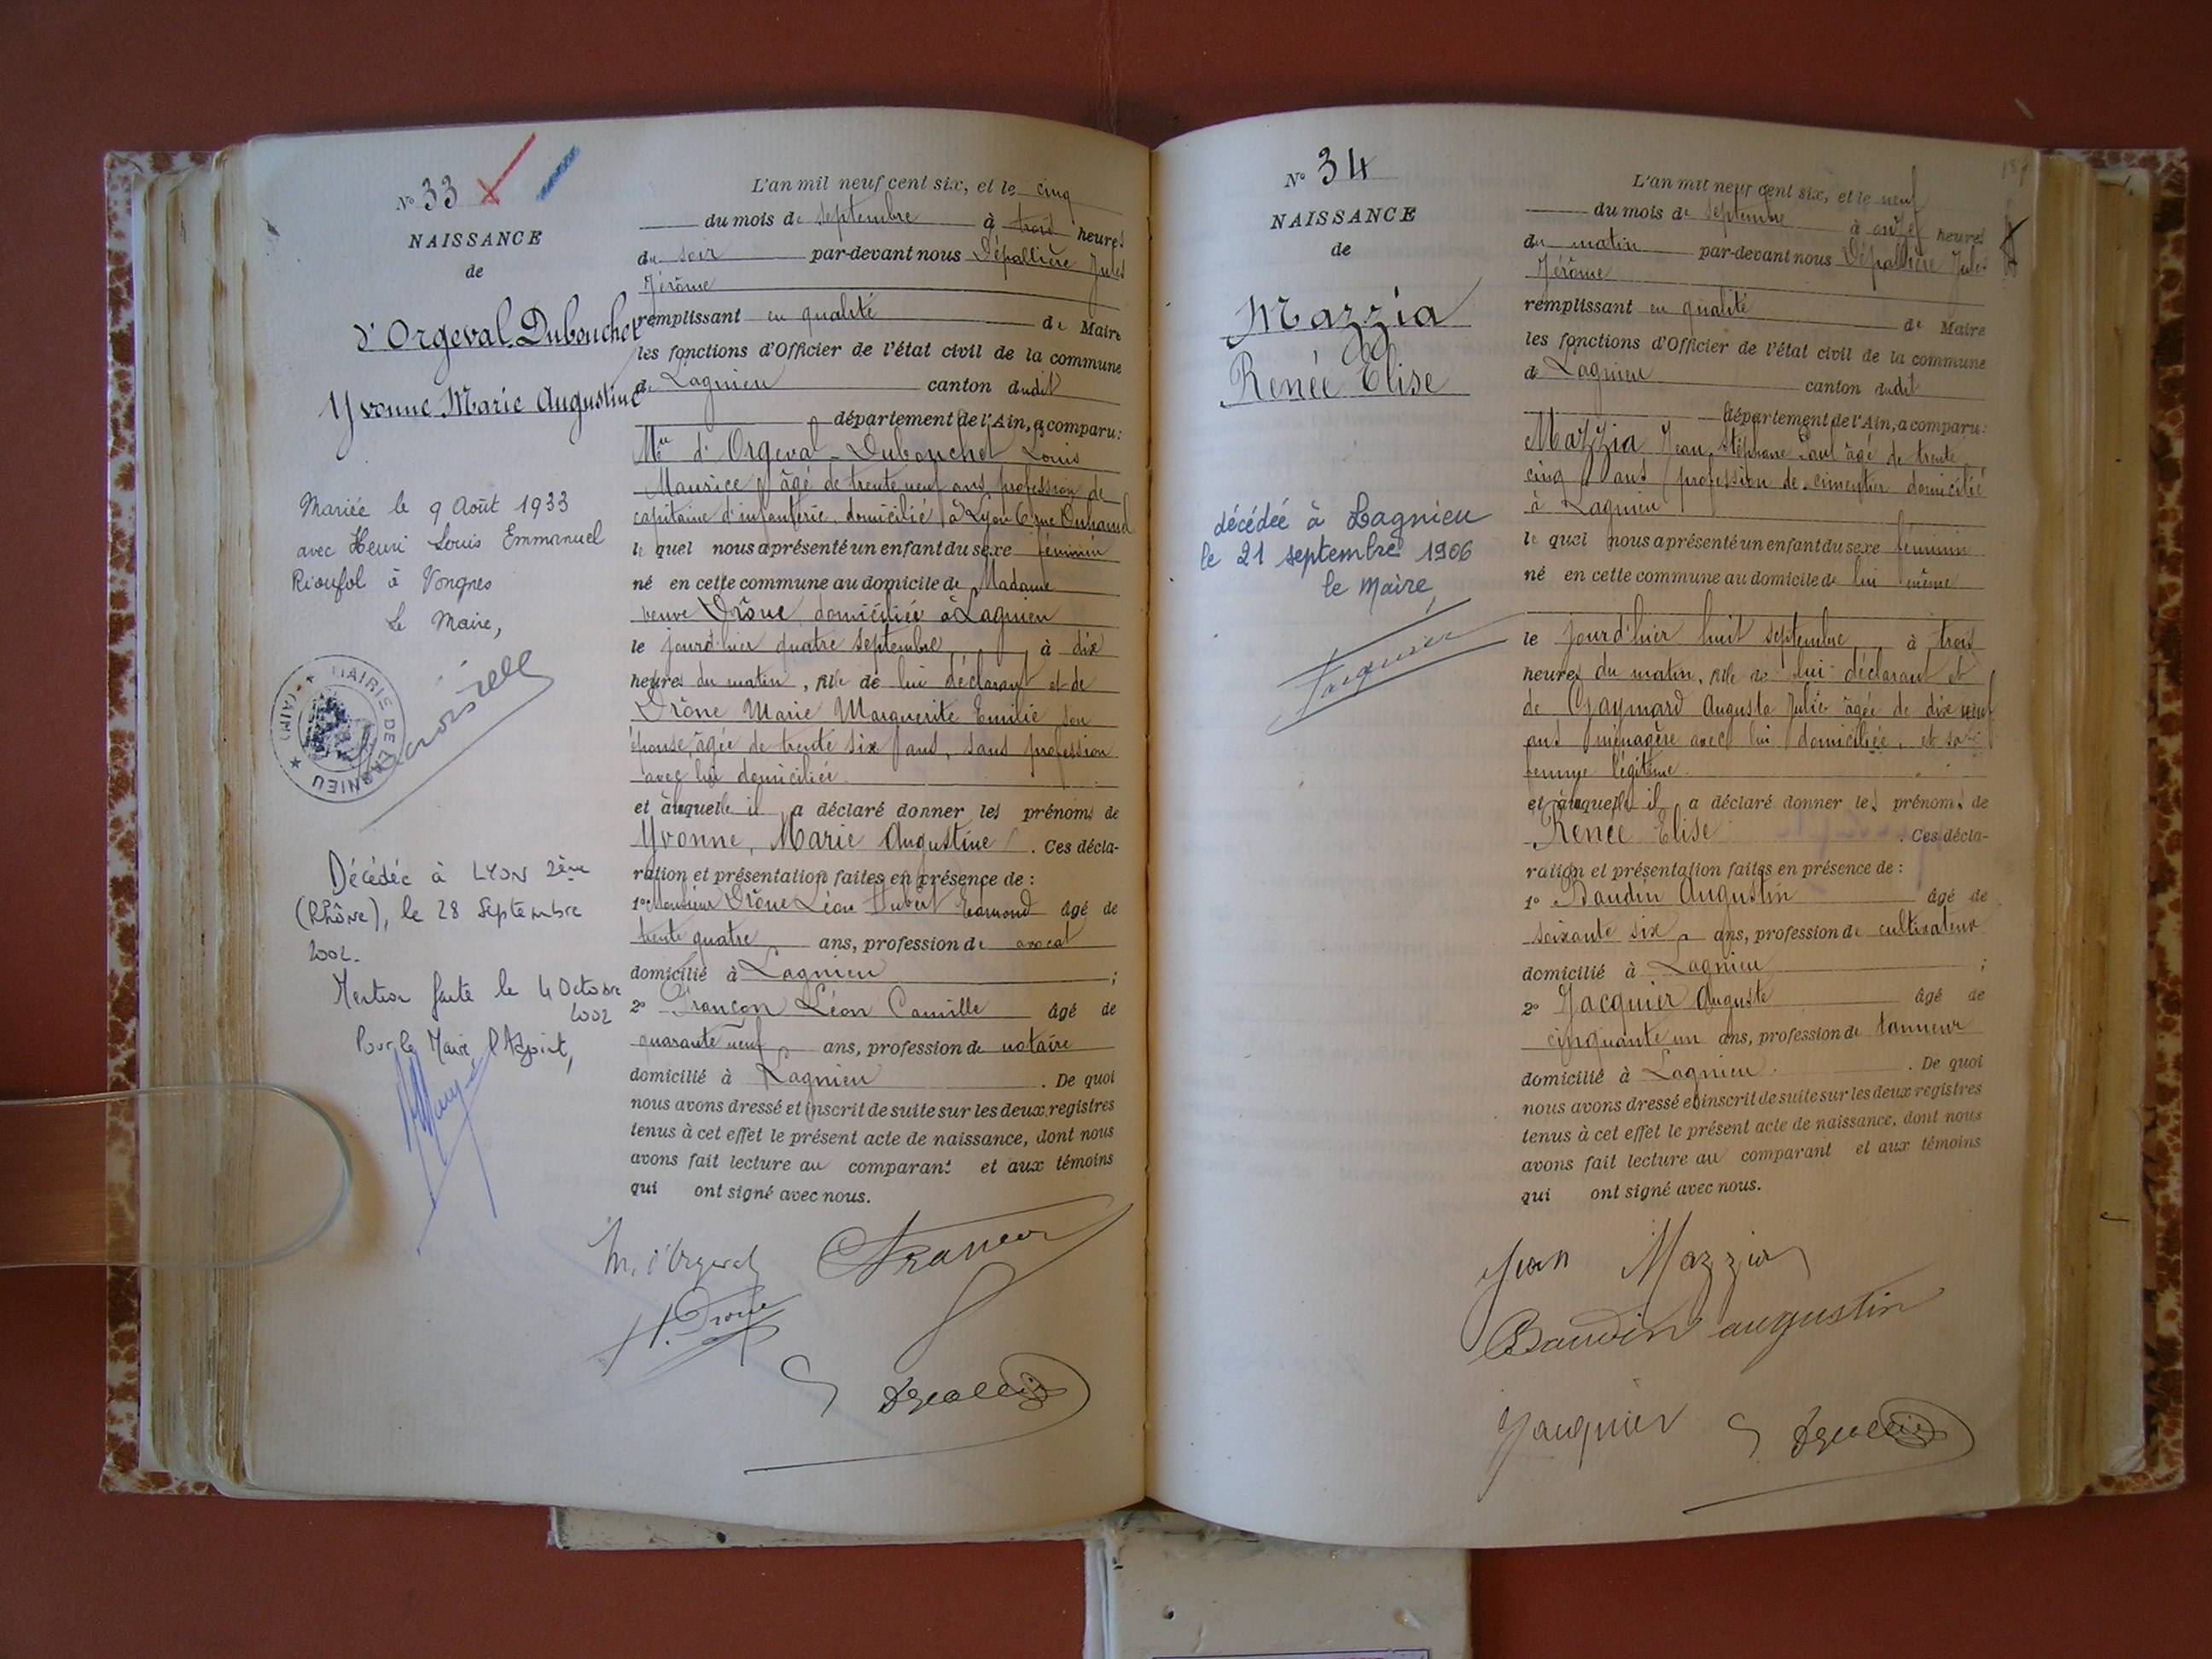 N° 33
NAISSANCE
de
d'Orgeval-Dubouchet
Yvonne Marie Augustine
Mariée le 9 Août 1933
avec Henri Louis Emmanuel
Rioufol à Vongnes
Le Maire,
MAIRIE DE LAGNIEU
★ (AIN) ★
Décédée à LYON 2ème
(Rhône), le 28 Septembre
2002.
Mention faite le 4 Octobre
2002
Pour le Maire, l'Adjoint,
L'an mil neuf cent six, et le cinq
du mois de septembre à trois heures
du soir par-devant nous Dépallière Jules
Jérôme
remplissant en qualité de Maire
les fonctions d'Officier de l'état civil de la commune
de Lagnieu canton dudit
département de l'Ain, a comparu:
Mr d'Orgeval-Dubouchet Louis
Maurice âgé de trente neuf ans profession de
capitaine d'infanterie, domicilié à Lyon 6 rue
le quel nous a présenté un enfant du sexe féminin
né en cette commune au domicile de Madame
veuve Drône, domiciliée à Lagnieu
le jourd'hier quatre septembre à dix
heures du matin, fille de lui déclarant et de
Drône Marie Marguerite Emilie son
épouse, âgée de trente six ans, sans profession
avec lui domiciliée.
et à laquelle il a déclaré donner les prénoms de
Yvonne, Marie Augustine. Ces décla-
ration et présentation faites en présence de :
1° Monsieur Drône Léon Hubert Edmond âgé de
trente quatre ans, profession de avocat
domicilié à Lagnieu ;
2° Françon Léon Camille âgé de
quarante neuf ans, profession de notaire
domicilié à Lagnieu. De quoi
nous avons dressé et inscrit de suite sur les deux registres
tenus à cet effet le présent acte de naissance, dont nous
avons fait lecture au comparant et aux témoins
qui ont signé avec nous.
M. d'Orgeval Françon
H. Drône
N° 34
NAISSANCE
de
Mazzia
Renée Elise
décédée à Lagnieu
le 21 septembre 1906
le Maire,
Jacquier
L'an mil neuf cent six, et le neuf
du mois de septembre à onze heures
du matin par-devant nous Dépallière Jules
Jérôme
remplissant en qualité de Maire
les fonctions d'Officier de l'état civil de la commune
de Lagnieu canton dudit
département de l'Ain, a comparu:
Mazzia Jean Stéphane Paul âgé de trente
cinq ans profession de cimentier domicilié
à Lagnieu
le quel nous a présenté un enfant du sexe féminin
né en cette commune au domicile de lui même
le jourd'hier huit septembre à trois
heures du matin, fille de lui déclarant et
de Gaymard Augusta Julie âgée de dix neuf
ans ménagère avec lui domiciliée, et sa
femme légitime.
et à laquelle il a déclaré donner les prénoms de
Renée Elise. Ces décla-
ration et présentation faites en présence de :
1° Baudin Augustin âgé de
soixante six ans, profession de cultivateur
domicilié à Lagnieu ;
2° Jacquier Auguste âgé de
cinquante un ans, profession de tanneur
domicilié à Lagnieu. De quoi
nous avons dressé et inscrit de suite sur les deux registres
tenus à cet effet le présent acte de naissance, dont nous
avons fait lecture au comparant et aux témoins
qui ont signé avec nous.
Jean Mazzia
Baudin augustin
Jacquier